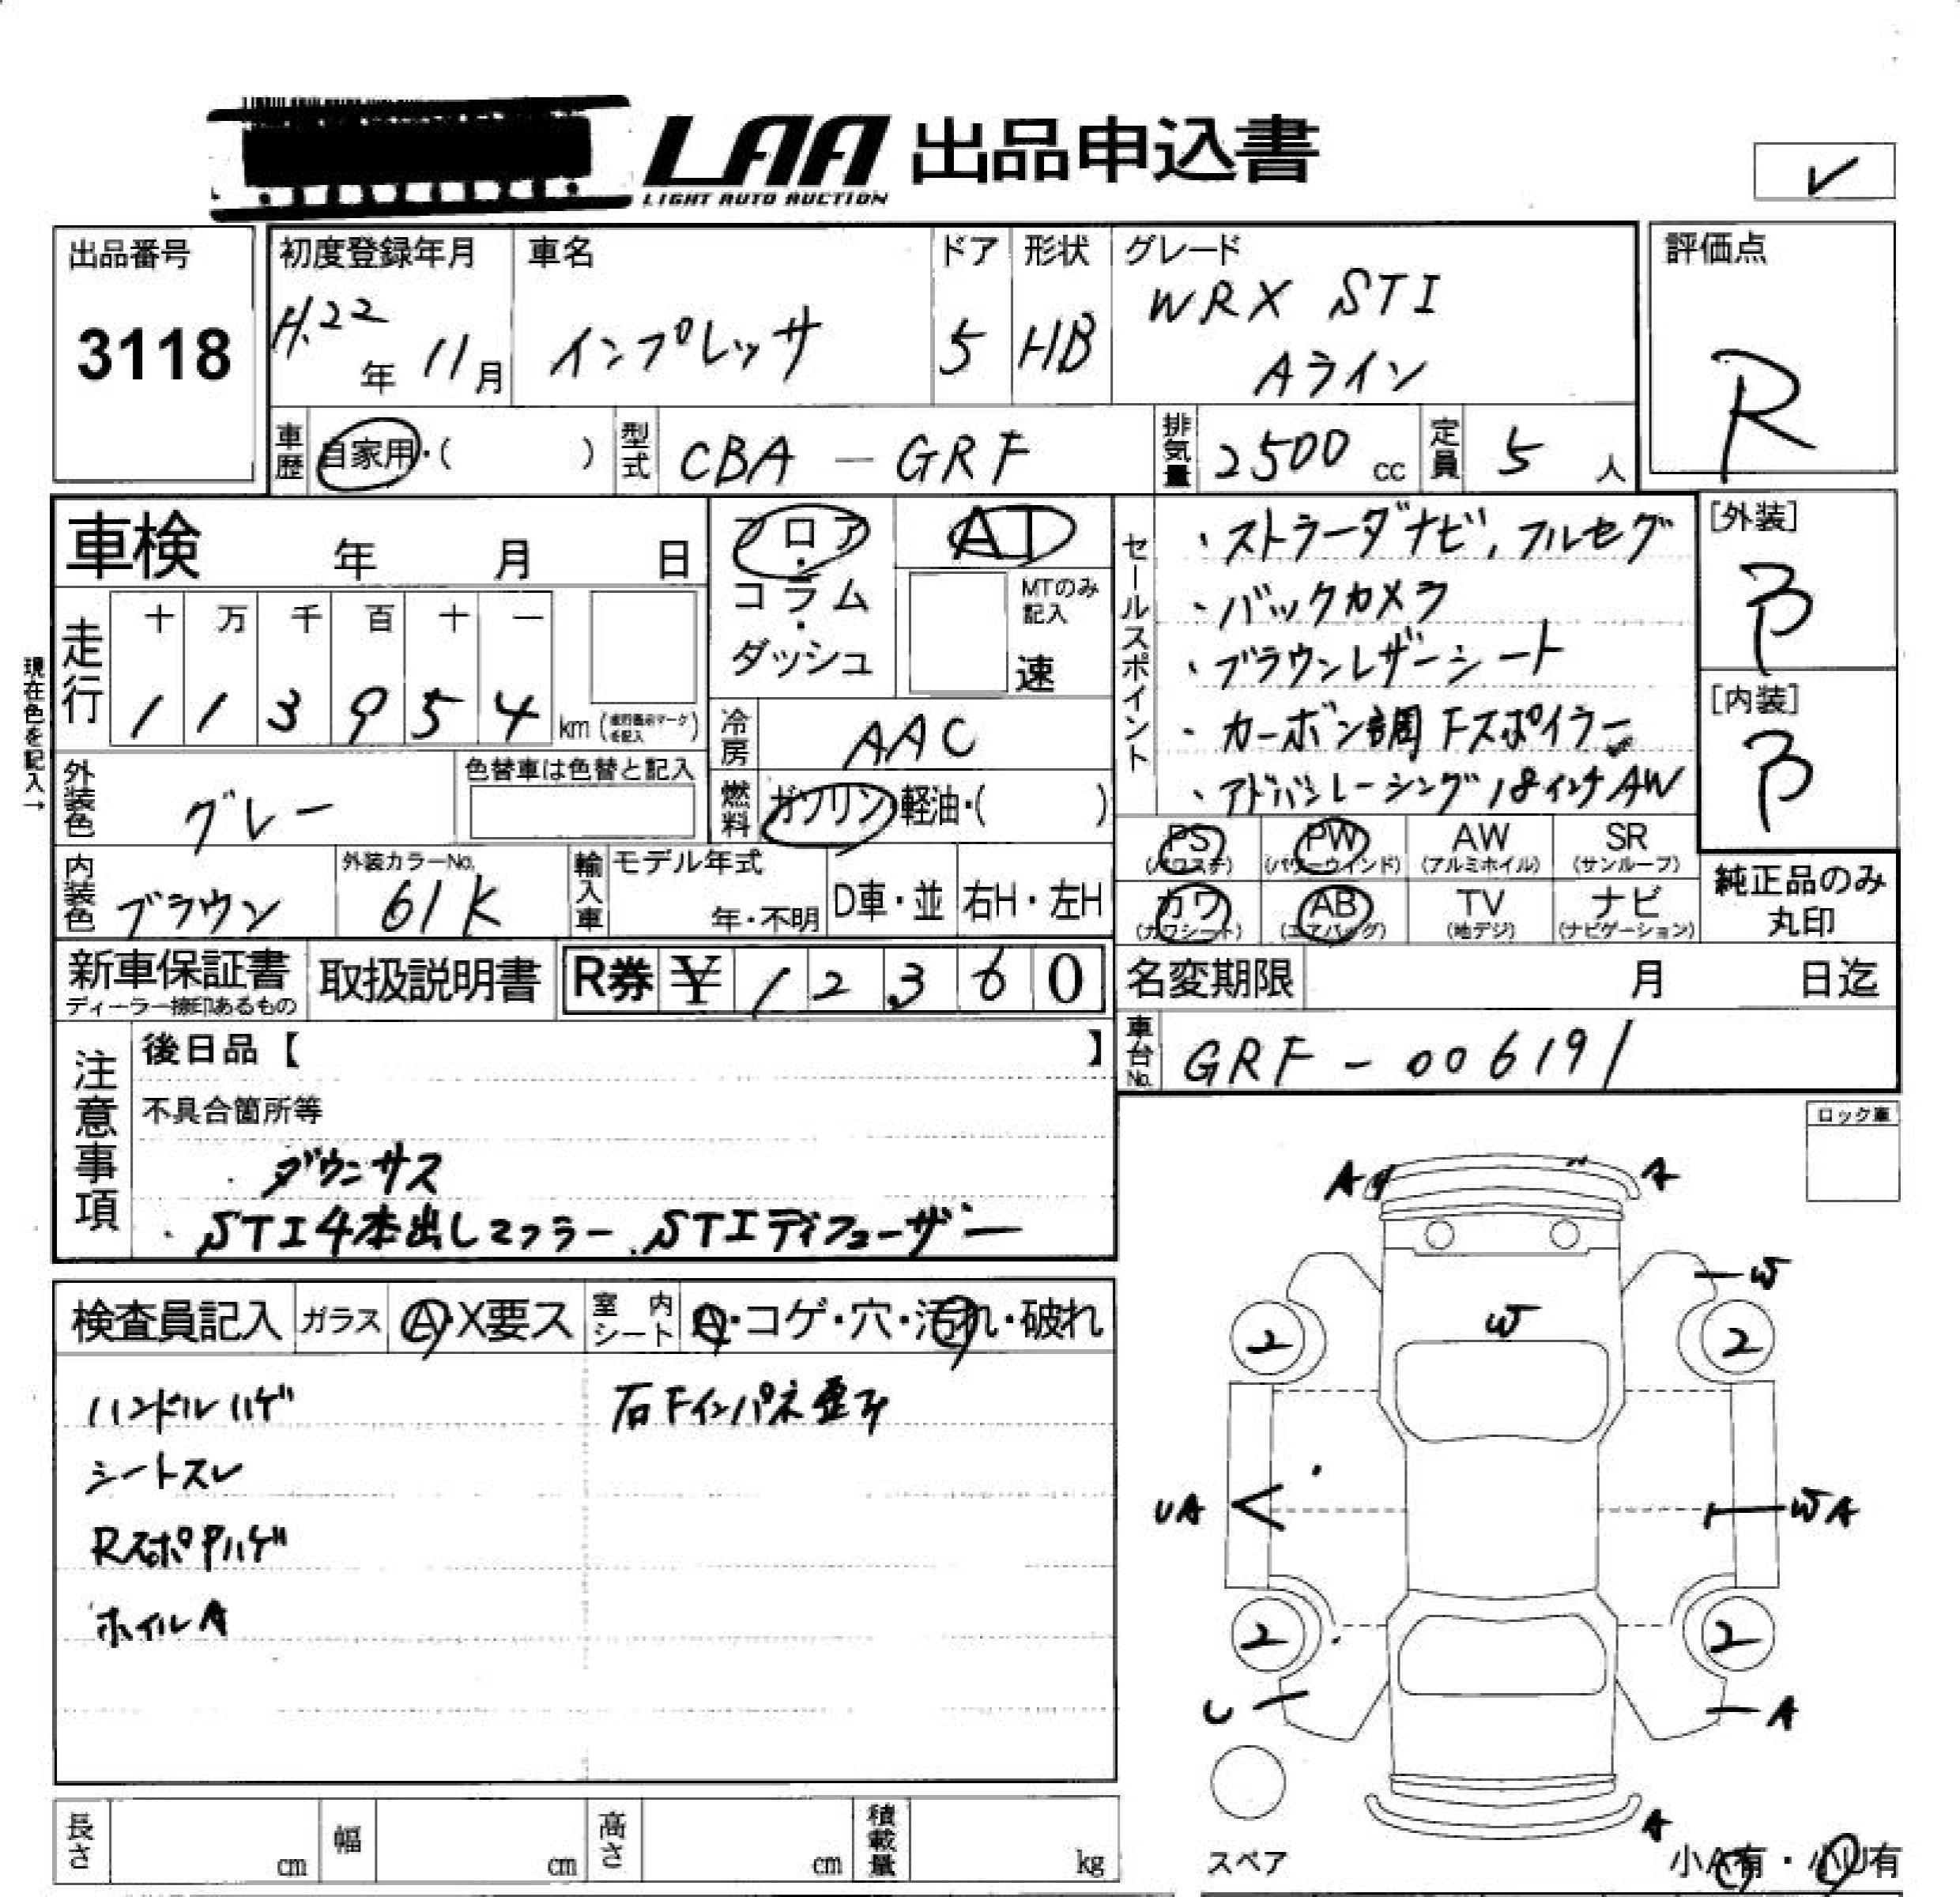 LAA 出品申込書
LIGHT AUTO AUCTION
出品番号
3118
初度登録年月
H.22年 11月
車名
インプレッサ
ドア
5
形状
HB
グレード
WRX STI
Aライン
評価点
R
車歴 自家用・( )
型式 CBA-GRF
排気量 2500 cc
定員 5 人
車検 年 月 日
フロア・コラム・ダッシュ
AT
MTのみ記入
速
セールスポイント
・ストラーダナビ、フルセグ
・バックカメラ
・ブラウンレザーシート
・カーボン調Fスポイラー
・アドバンレーシング18インチAW
[外装]
B
[内装]
B
現在色を記入→
走行
十 万 千 百 十 一
1 1 3 9 5 4 km (走行距離マークを記入)
冷房 AAC
外装色 グレー
色替車は色替と記入
燃料 ガソリン・軽油・( )
PS (パワステ)
PW (パワーウインド)
AW (アルミホイル)
SR (サンルーフ)
カワ (カワシート)
AB (エアバッグ)
TV (地デジ)
ナビ (ナビゲーション)
純正品のみ丸印
内装色 ブラウン
外装カラーNo. 61K
輸入車
モデル年式
年・不明
D車・並
右H・左H
新車保証書
ディーラー捺印あるもの
取扱説明書
R券 ¥ 1 2 3 6 0
名変期限 月 日迄
車台No. GRF-006191
注意事項
後日品【 】
不具合箇所等
・ダウンサス
・STI4本出しマフラー、STIディフューザー
ロック車
検査員記入
ガラス A・X要ス
室内シート A・コゲ・穴・汚れ・破れ
ハンドルハゲ
シートスレ
RスポPハゲ
ホイルA
右Fインパネ歪み
A
A
W
W
2
2
UA
WA
2
2
U
A
A
スペア
小A有・小U有
長さ cm
幅 cm
高さ cm
積載量 kg